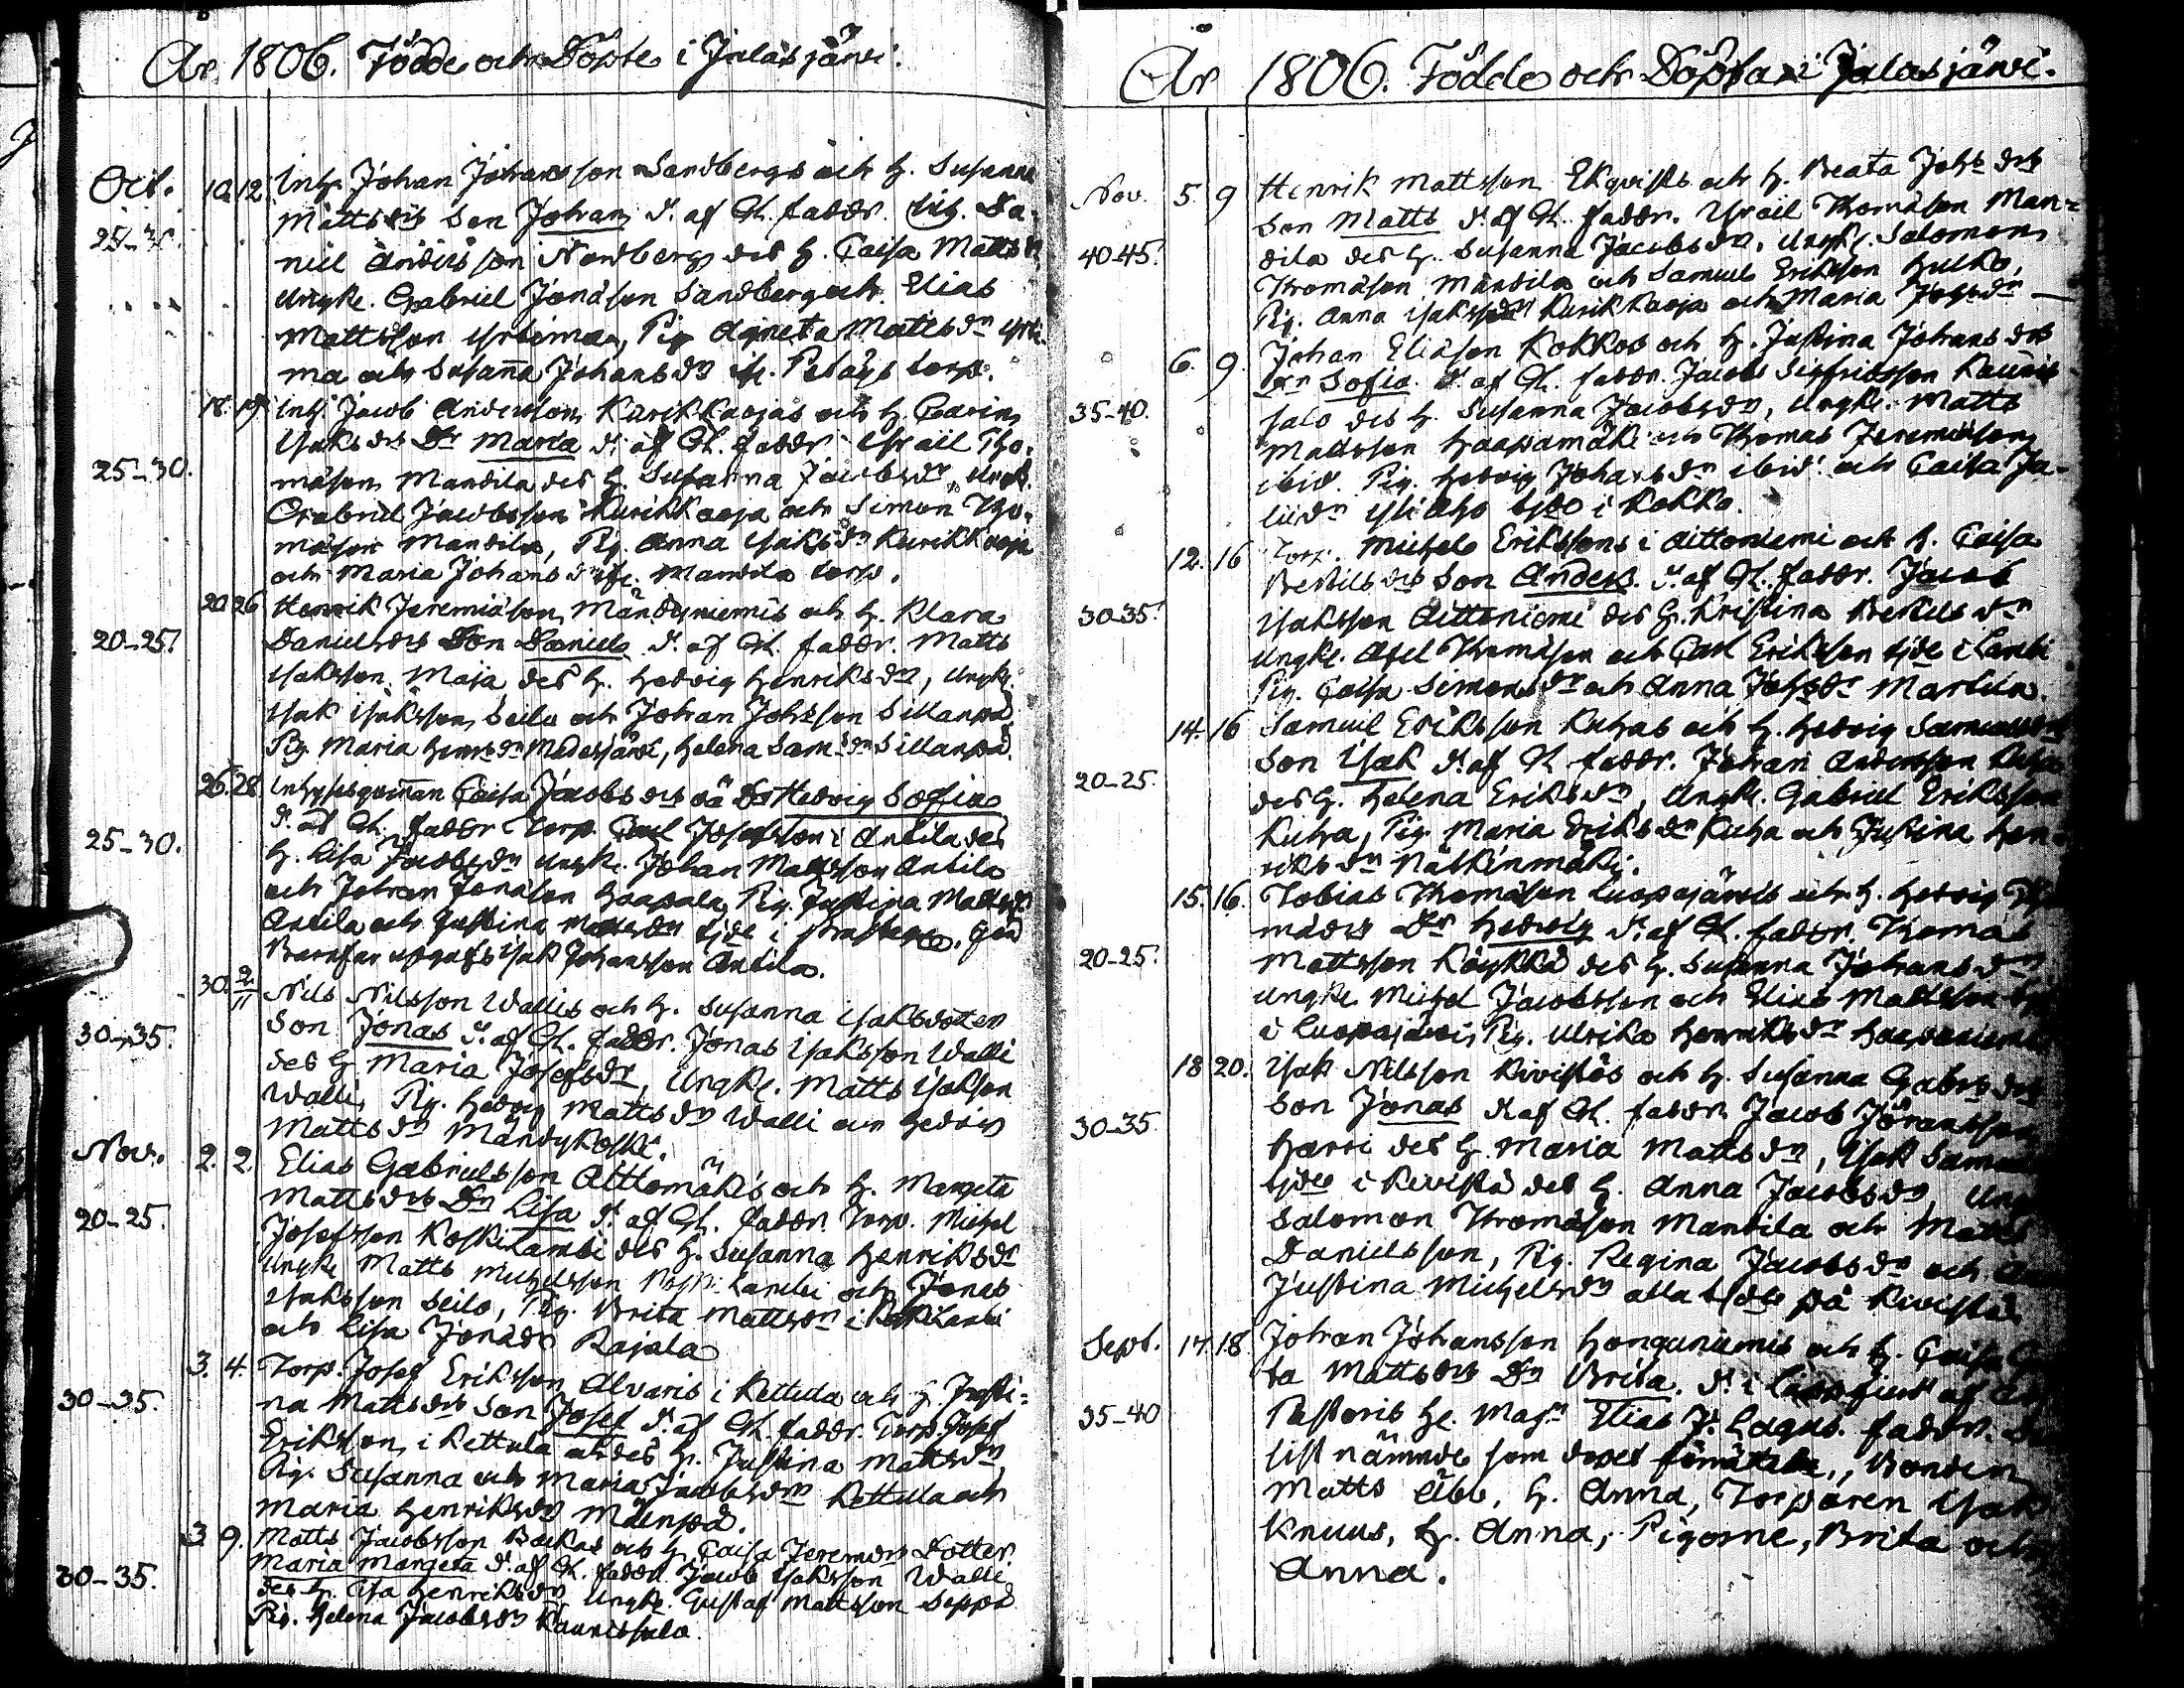 År 1806. Födde och Döpte i Jalasjärvi.
Oct. 10. 12. Inh. Johan Johansson Sandbergs och h. Susanna
25-30. Mattsdrs Son Johan d. af Gl. faddr. Inh. Da-
niel Andersson Nordberg des h. Caisa Mattsdr
Ungk. Gabriel Jonäson Sandberg och Elias
Mattsson Yrtimä, Pig. Agneta Mattsdr Yrti-
ma och Susanna Johansdr
18. 19. Inh. Jacob Andersson Kurikkaojas och h. Carin
Isaksdrs Dr Maria d. af Gl. faddr. Israel Tho-
25-30. mäson Mandila des h. Susanna Jacobsdr, Ungk.
Gabriel Jacobsson Kurikkaoja och Simon Tho-
mäson Mandila, Pig. Anna Isaksdr Kurikkaoja
och Maria Johansdr Mandila torp.
20 26 Henrik Jeremiäson Mändyniemis och h. Klara
20-25. Danielsdrs Son Daniel d. af Gl. faddr. Matts
Isaksson Maja des h. Hedvig Henriksdr, Ungk.
Isak Isaksson Seilo och Johan Johsson Sillanpä
Pig. Maria Henrsdr Madesjärvi, Helena Sam.dr Sillanpä.
26. 28. Inhysesqvinnan Caisa Jacobsdrs oä Dr Hedvig Sofia
d. af Gl. faddr Torp. Carl Josefsson i Antila des
25-30. h. Lisa Jacobsdr Ungk. Johan Mattsson Antila
och Johan Jonäson Haapala, Pig. Justina Mattsdr
Antila och Justina Mattsdr tjde i
Barnfar upgafs Isak Johansson Antila.
30. 2/11 Nils Nilsson Wallis och h. Susanna Isaksdotter
30-35. Son Jonas d. af Gl. faddr. Jonas Isaksson Walli
des h. Maria Josefsdr, Ungk. Matts Isakson
Walli, Pig. Hedvig Mattsdr Walli och Hedvig
Mattsdr Mändykoski.
Nov. 2. 2. Elias Gabrielsson Alttomäkis och h. Margeta
Mattsdrs Dr Lisa d. af Gl. faddr. Torp. Michel
20-25. Josefsson Koskilambi des h. Susanna Henriksdr
Ungk. Matts Michelsson Koskilambi och Jonas
Isaksson Seilo, Pig. Brita Mattsdr i Koskilambi
och Lisa Jonädr Rajala
3. 4. Torp. Josef Eriksson Alvaris i Kettula och h. Justi-
30-35. na Mattsdrs Son Josef d. af Gl. faddr. Torp. Josef
Eriksson i Kettula och des h. Justina Mattsdr,
Pig. Susanna och Maria Jacobsdrn Kettula och
Maria Henriksdr Mäenpä.
3. 9. Matts Jacobsson Backas och h. Caisa Jeremdrs Dotter
30-35. Maria Margeta d. af Gl. faddr. Jacob Isaksson Walli
des h. Lisa Henriksdr, Ungk. Gustaf Mattsson Seppä
Pig. Helena Jacobsdr Kauriisalo.
År 1806. Födde och Döpta i Jalasjärvi.
Nov. 5. 9 Henrik Mattsson Ekqvists och h. Beata Johsdrs
Son Matts d. af Gl. faddr. Israel Thomäson Man-
40-45. dila des h. Susanna Jacobsdr, Ungk. Salomon
Thomäson Mandila och Samuel Eriksson Hulko,
Pig. Anna Isaksdr Kurikkaoja och Maria Johsdr —
6. 9. Johan Eliäson Kokkos och h. Justina Johansdrs
Dr Sofia d. af Gl. faddr. Jacob Sigfridsson Kauris-
35-40. salo des h. Susanna Jacobsdr, Ungk. Matts
Mattsson Haapamäki och Thomas Jeremiäson
ibid. Pig. Hedvig Johansdr ibid. och Caisa Ja-
cobsdr Yliaho tjde i Kokko.
12. 16 Torp. Michel Erikssons i Aittoniemi och h. Caisa
Bertilsdrs Son Anders. d. af Gl. faddr. Jacob
30-35. Isaksson Aittoniemi des h. Kristina Bertilsdr
Ungk. Axel Thomäson och Carl Eriksson tjde i Lambi
Pig. Caisa Simonsdr och Anna Johsdr Martila.
14. 16 Samuel Eriksson Kuhas och h. Hedvig Samuelsdrs
Son Isak d. af Gl. faddr. Johan Andersson Kuha
20-25. des h. Helena Eriksdr, Ungk. Gabriel Eriksson
Kuha, Pig. Maria Eriksdr Kuha och Justina Hen-
riksdr Nälkinmäki.
15. 16. Tobias Thomäson Luopajärvis och h. Hedvig Tho-
mädrs Dr Hedvig d. af Gl. faddr. Thomas
20-25. Mattsson Köykkä des h. Susanna Johansdr
Ungk. Michel Jacobsson och Elias Mattsson
i Luopajärvi, Pig. Ulrika Henriksdr Haapaniemi
18 20. Isak Nilsson Kivistös och h. Susanna Gabrsdrs
Son Jonas d. af Gl. faddr. Jacob Göransson
30-35 Harri des h. Maria Mattsdr, Isak Samuelsson
tjde i Kivistö des h. Anna Jacobsdr, Ungk.
Salomon Thomäson Mandila och Matts
Danielsson, Pig. Regina Jacobsdr och
Justina Michelsdr alla tjde på Kivistö
Sept. 14. 18. Johan Johansson Honganiemis och h. Caisa Gre-
ta Mattsdrs Dr Brita. d. i Lappfjerd af
35-40 Pastoris h. Magr Elias J. Lagus. faddr.
sist nämnde som dopet förrättade, Bonden
Matts Åbb, h. Anna, Torparen Isak
Knuus, h. Anna, Pigorne, Brita och
Anna.